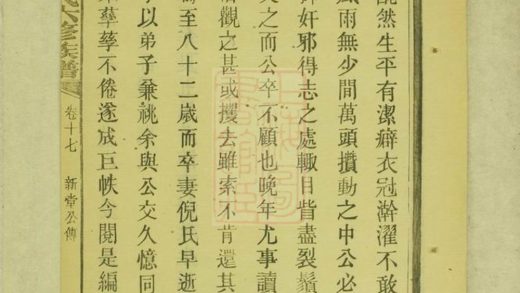 然生平有潔癖衣冠澣濯不敢
風雨無少間萬頭攢動之中公必
奸邪得志之處輙目眥盡裂鬚
之而公卒不顧也晚年尤事讀
觀之甚或攫去雖索不肯還其
至八十二歲而卒妻倪氏早逝
以弟子兼祧余與公交久憶同
孳孳不倦遂成巨帙今閱是編
六修族譜 卷十七 新堂公傳